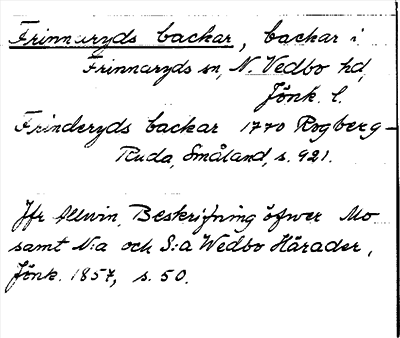 Frinnaryds backar, backar i
Frinnaryds sn, N. Vedbo hd,
Jönk. l.
Frinderyds backar 1770 Rogberg-
Ruda, Småland, s. 921.
Jfr Allvin, Beskrifning öfwer Mo
samt N:a och S:a Wedbo Härader,
Jönk. 1857, s. 50.